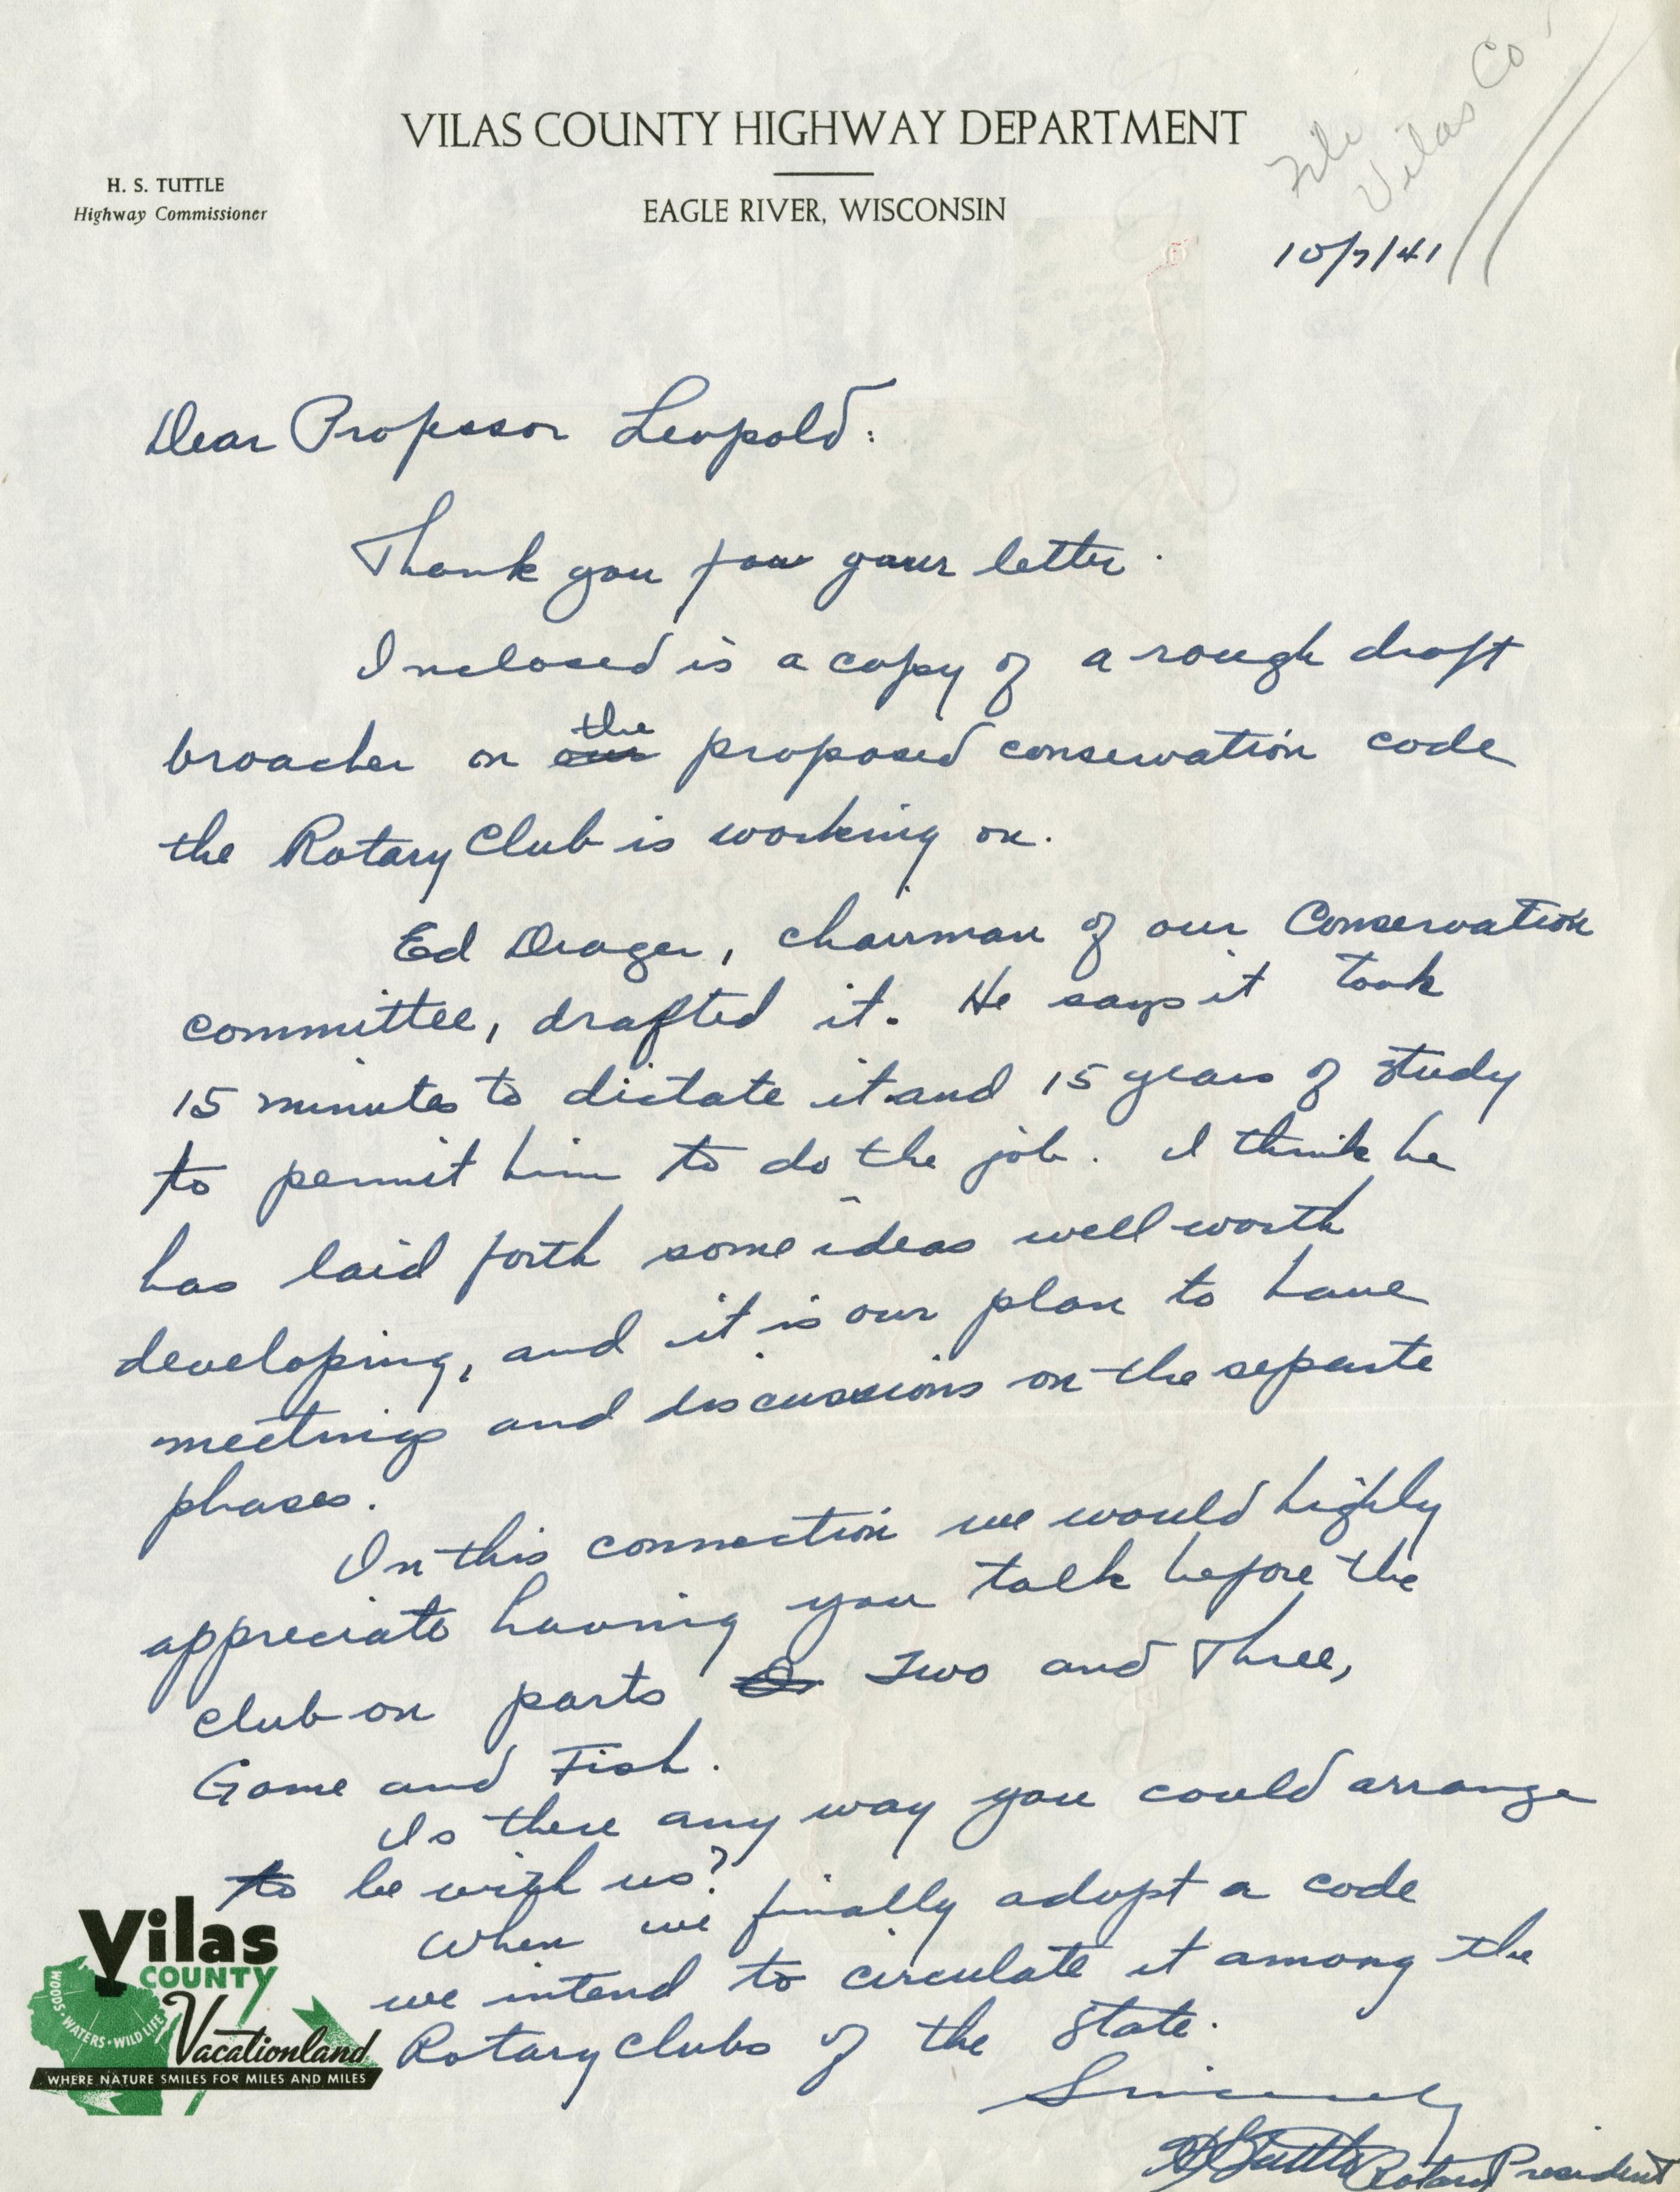 File
Vilas Co
VILAS COUNTY HIGHWAY DEPARTMENT
H. S. TUTTLE
Highway Commissioner
EAGLE RIVER, WISCONSIN
10/7/41
Dear Professor Leopold:
Thank you for your letter.
Inclosed is a copy of a rough draft
the
broacher on our proposed conservation code
the Rotary Club is working on.
Ed Drager, chairman of our Conservation
committee, drafted it. He says it took
15 minutes to dictate it and 15 years of study
to permit him to do the job. I think he
has laid forth some ideas well worth
developing, and it is our plan to have
meetings and discussions on the separte
phases.
In this connection we would highly
appreciate having you talk before the
club on parts Two and Three,
Game and Fish.
Is there any way you could arrange
to be with us?
When we finally adopt a code
we intend to circulate it among the
Rotary Clubs of the State.
Sincerely
HSTuttle Rotary President
Vilas
COUNTY
WOODS • WATERS • WILD LIFE
Vacationland
WHERE NATURE SMILES FOR MILES AND MILES